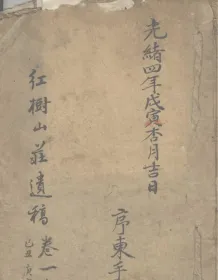 光緒四年戊寅杏月吉日
序東手
紅樹山莊遺稿卷一